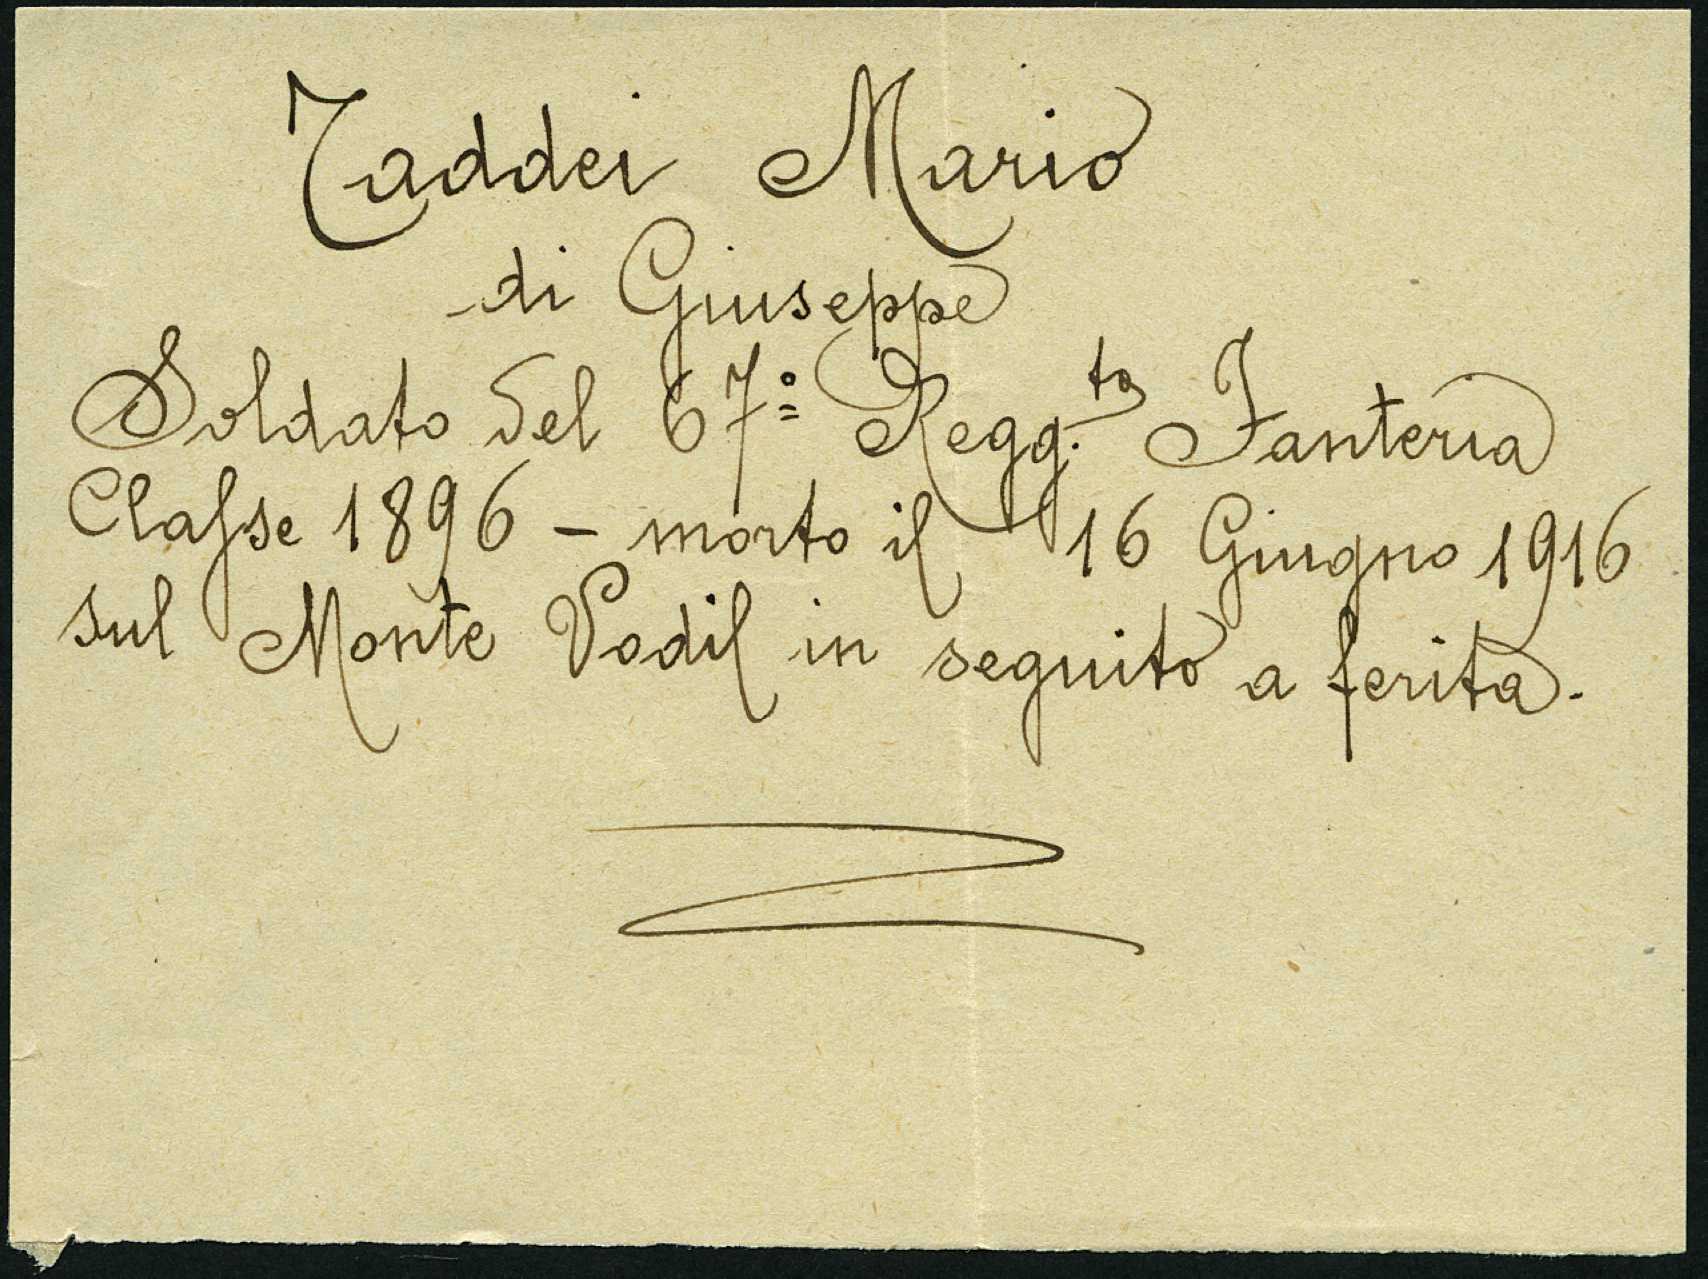 Taddei Mario
di Giuseppe
Soldato del 67º Regg.to Fanteria
Classe 1896 – morto il 16 Giugno 1916
sul Monte Vodil in seguito a ferita.